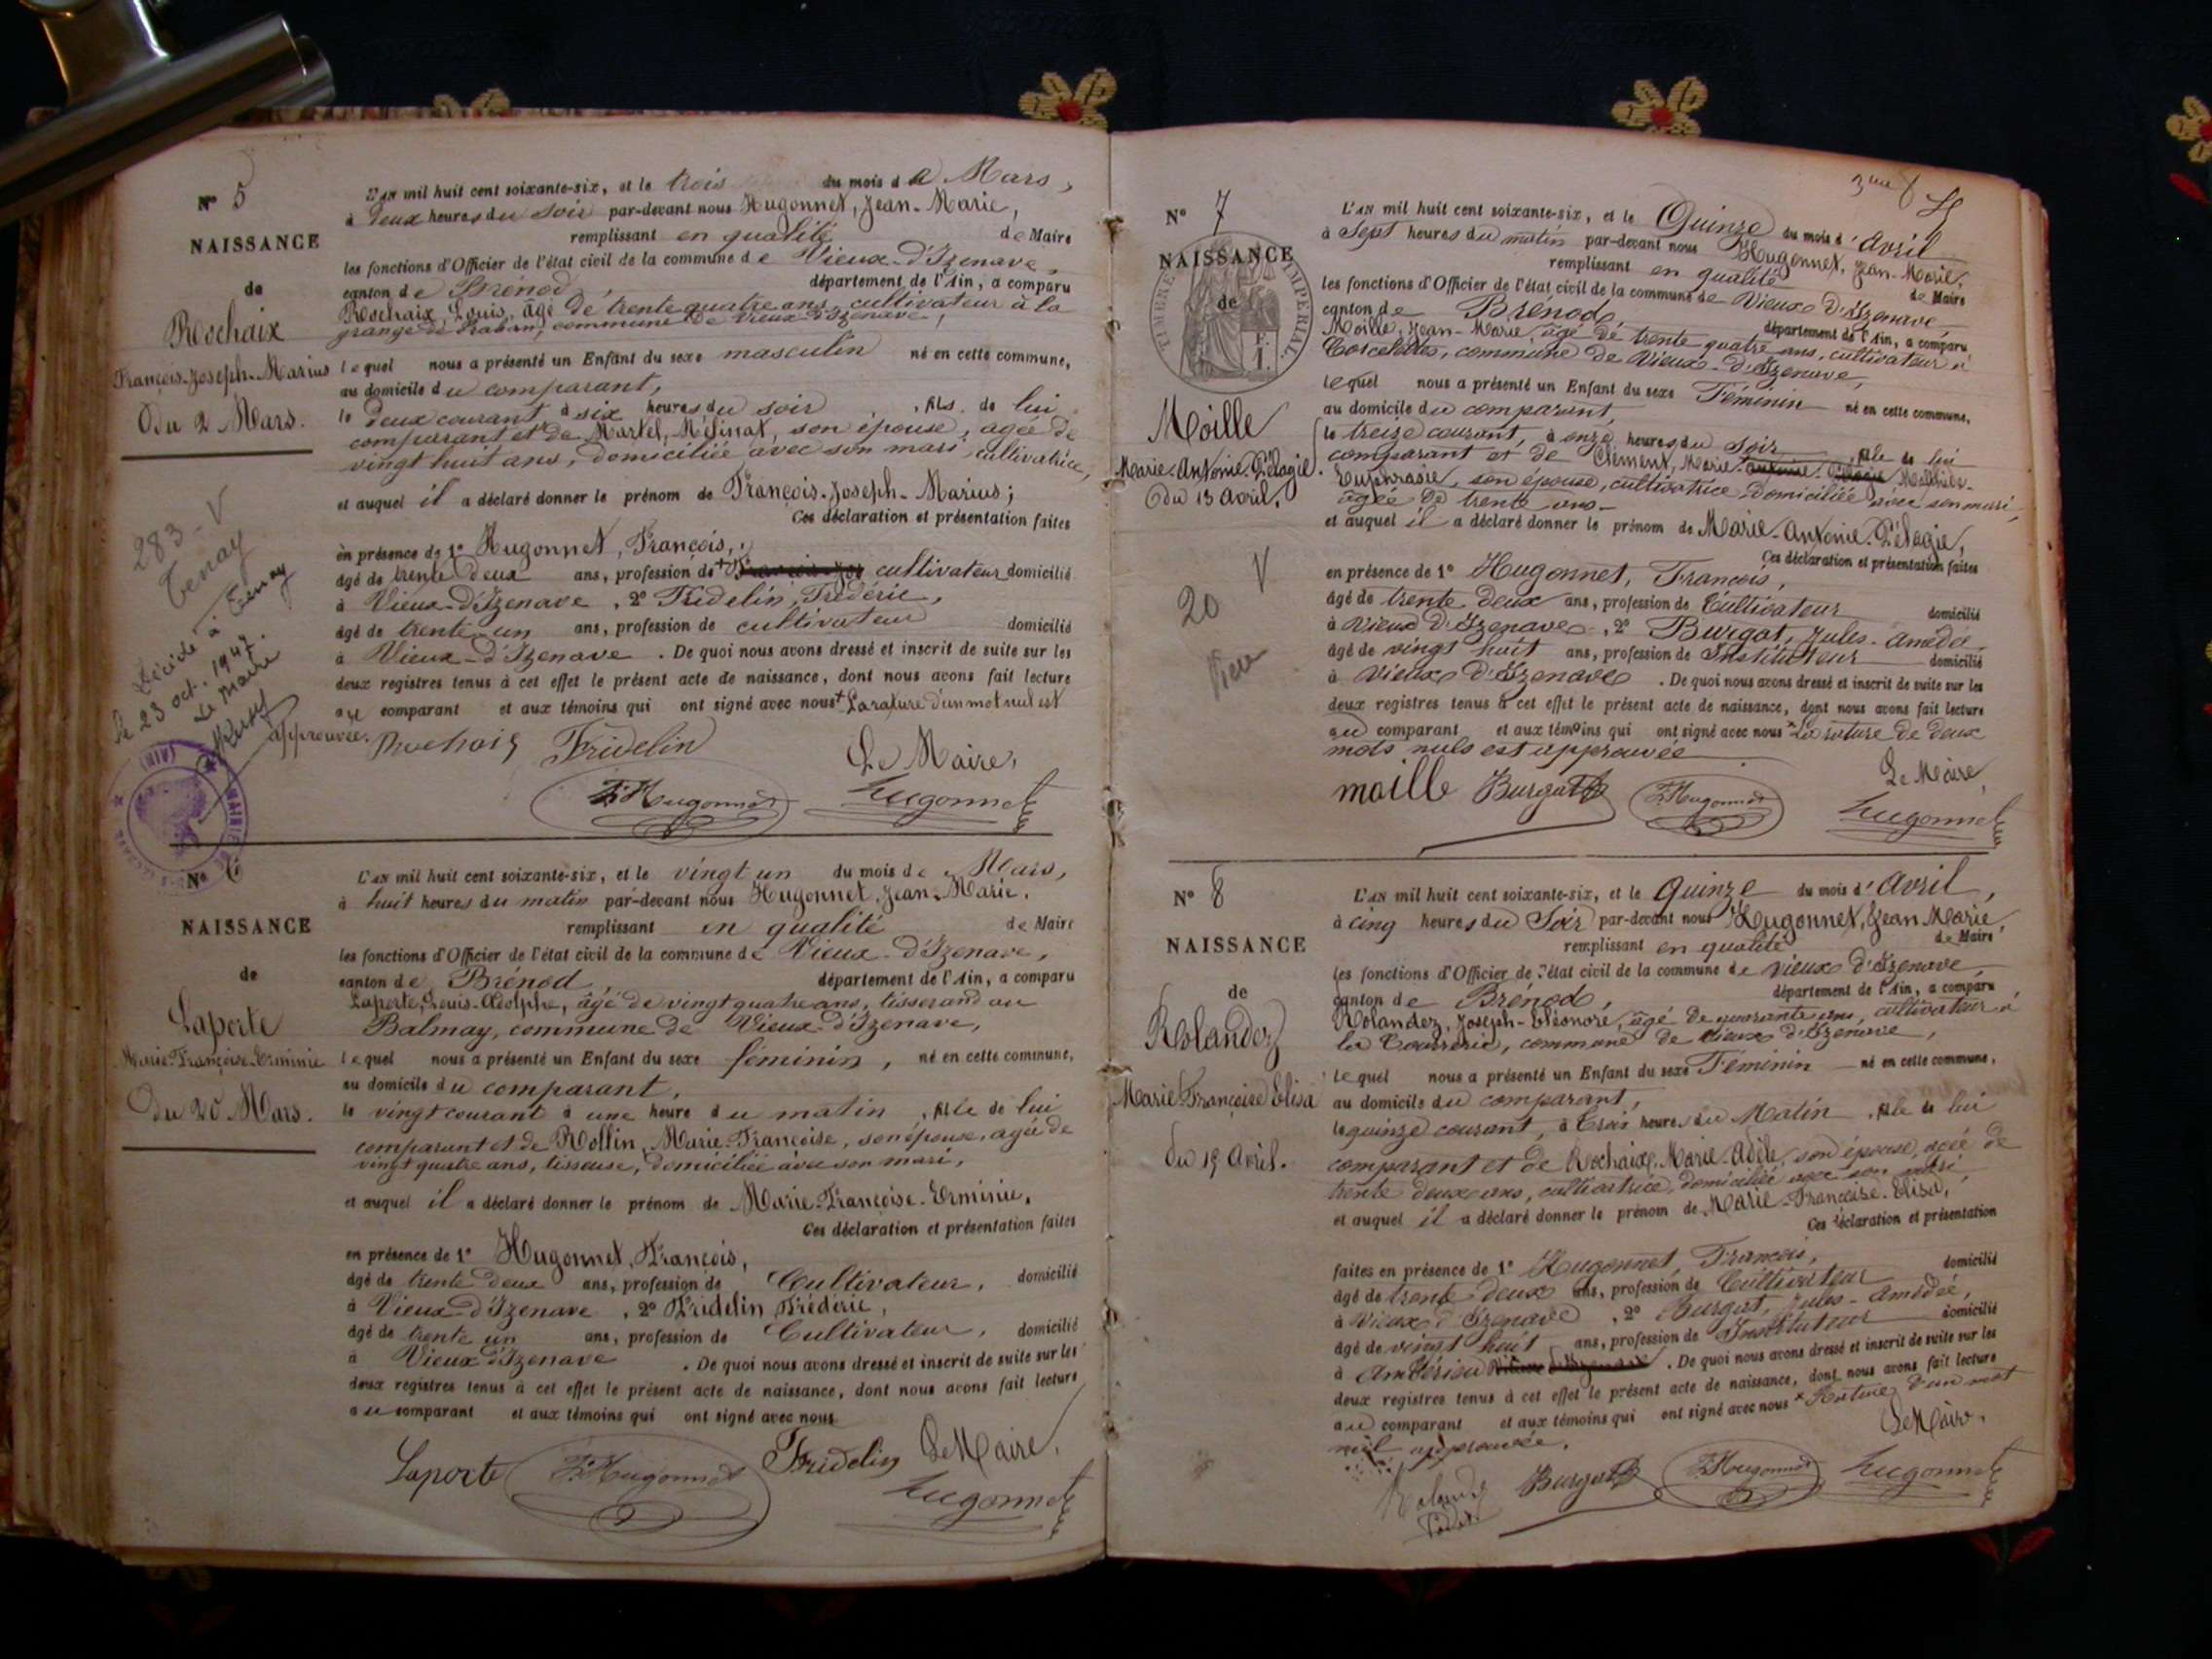 N° 5
NAISSANCE
de
Rochaix
François-Joseph-Marius
Du 2 Mars.
283 - V
Tenay
Décédé à Tenay
le 23 oct. 1947.
Le Maire
L'AN mil huit cent soixante-six, et le trois du mois de Mars,
à deux heures du soir par-devant nous Hugonnet, Jean-Marie,
remplissant en qualité de Maire
les fonctions d'Officier de l'état civil de la commune de Vieux-d'Izenave,
canton de Brénod, département de l'Ain, a comparu
Rochaix, Louis, âgé de trente quatre ans, cultivateur à la
grange de Raban, commune de Vieux-d'Izenave,
lequel nous a présenté un Enfant du sexe masculin né en cette commune,
au domicile du comparant,
le deux courant à six heures du soir, fils de lui
comparant et de Martel, Mélinat, son épouse, âgée de
vingt huit ans, domiciliée avec son mari, cultivatrice,
et auquel il a déclaré donner le prénom de François-Joseph-Marius;
Ces déclaration et présentation faites
en présence de 1° Hugonnet, François,
âgé de trente deux ans, profession de + cultivateur domicilié
à Vieux-d'Izenave, 2° Fridelin, Frédéric,
âgé de trente-un ans, profession de cultivateur domicilié
à Vieux-d'Izenave. De quoi nous avons dressé et inscrit de suite sur les
deux registres tenus à cet effet le présent acte de naissance, dont nous avons fait lecture
au comparant et aux témoins qui ont signé avec nous + La rature d'un mot nul est
approuvée.
Rochaix Fridelin Le Maire,
F. Hugonnet Hugonnet
N° 6
NAISSANCE
de
Laporte
Marie-Françoise-Erminie
Du 20 Mars.
L'AN mil huit cent soixante-six, et le vingt un du mois de Mars,
à huit heures du matin par-devant nous Hugonnet, Jean-Marie,
remplissant en qualité de Maire
les fonctions d'Officier de l'état civil de la commune de Vieux-d'Izenave,
canton de Brénod, département de l'Ain, a comparu
Laporte, Louis-Adolphe, âgé de vingt quatre ans, tisserand au
Balmay, commune de Vieux-d'Izenave,
lequel nous a présenté un Enfant du sexe féminin, né en cette commune,
au domicile du comparant,
le vingt courant à une heure du matin, fille de lui
comparant et de Rollin, Marie-Françoise, son épouse, âgée de
vingt quatre ans, tisseuse, domiciliée avec son mari,
et auquel il a déclaré donner le prénom de Marie-Françoise-Erminie,
Ces déclaration et présentation faites
en présence de 1° Hugonnet, François,
âgé de trente deux ans, profession de Cultivateur, domicilié
à Vieux-d'Izenave, 2° Fridelin Frédéric,
âgé de trente un ans, profession de Cultivateur, domicilié
à Vieux d'Izenave. De quoi nous avons dressé et inscrit de suite sur les
deux registres tenus à cet effet le présent acte de naissance, dont nous avons fait lecture
au comparant et aux témoins qui ont signé avec nous
Laporte F. Hugonnet Fridelin Le Maire,
Hugonnet
N° 7
NAISSANCE
de
TIMBRE IMPERIAL
Moille
Marie-Antonie-Pélagie
du 13 Avril.
20 V
L'AN mil huit cent soixante-six, et le Quinze du mois d'Avril
à Sept heures du matin par-devant nous Hugonnet, Jean-Marie,
remplissant en qualité de Maire
les fonctions d'Officier de l'état civil de la commune de Vieux d'Izenave,
canton de Brénod, département de l'Ain, a comparu
Moille, Jean-Marie, âgé de trente-quatre ans, cultivateur à
Corcelettes, commune de Vieux-d'Izenave,
lequel nous a présenté un Enfant du sexe Féminin né en cette commune,
au domicile du comparant,
le treize courant, à onze heures du soir, fille de lui
comparant et de Clément, Marie
Euphrasie, son épouse, cultivatrice domiciliée avec son mari,
âgée de trente ans
et auquel il a déclaré donner le prénom de Marie-Antonie-Pélagie,
Ces déclaration et présentation faites
en présence de 1° Hugonnet, François,
âgé de trente deux ans, profession de Cultivateur domicilié
à Vieux d'Izenave, 2° Burgat, Jules-Amédé
âgé de vingt huit ans, profession de Instituteur domicilié
à Vieux d'Izenave. De quoi nous avons dressé et inscrit de suite sur les
deux registres tenus à cet effet le présent acte de naissance, dont nous avons fait lecture
au comparant et aux témoins qui ont signé avec nous × La rature de deux
mots nuls est approuvée
moille Burgat F. Hugonnet Le Maire,
Hugonnet
N° 8
NAISSANCE
de
Rolandez
Marie Françoise Elisa
du 15 Avril.
L'AN mil huit cent soixante-six, et le Quinze du mois d'Avril,
à cinq heures du Soir par-devant nous Hugonnet, Jean Marie,
remplissant en qualité de Maire
les fonctions d'Officier de l'état civil de la commune de Vieux d'Izenave,
canton de Brénod, département de l'Ain, a comparu
Rolandez, Joseph-Eléonore, âgé de quarante ans, cultivateur à
la Courrerie, commune de Vieux d'Izenave,
lequel nous a présenté un Enfant du sexe Féminin né en cette commune,
au domicile du comparant,
le quinze courant, à trois heures du Matin, fille de lui
comparant et de Rochaix, Marie-Adèle, son épouse, âgée de
trente deux ans, cultivatrice, domiciliée avec son mari,
et auquel il a déclaré donner le prénom de Marie-Françoise-Elisa,
Ces déclaration et présentation
faites en présence de 1° Hugonnet, François,
âgé de trente deux ans, profession de Cultivateur domicilié
à Vieux d'Izenave, 2° Burgat, Jules-Amédée,
âgé de vingt huit ans, profession de Instituteur domicilié
à Ambérieu. De quoi nous avons dressé et inscrit de suite sur les
deux registres tenus à cet effet le présent acte de naissance, dont nous avons fait lecture
au comparant et aux témoins qui ont signé avec nous × Rature d'un mot
nul approuvée. Le Maire,
Burgat F. Hugonnet Hugonnet